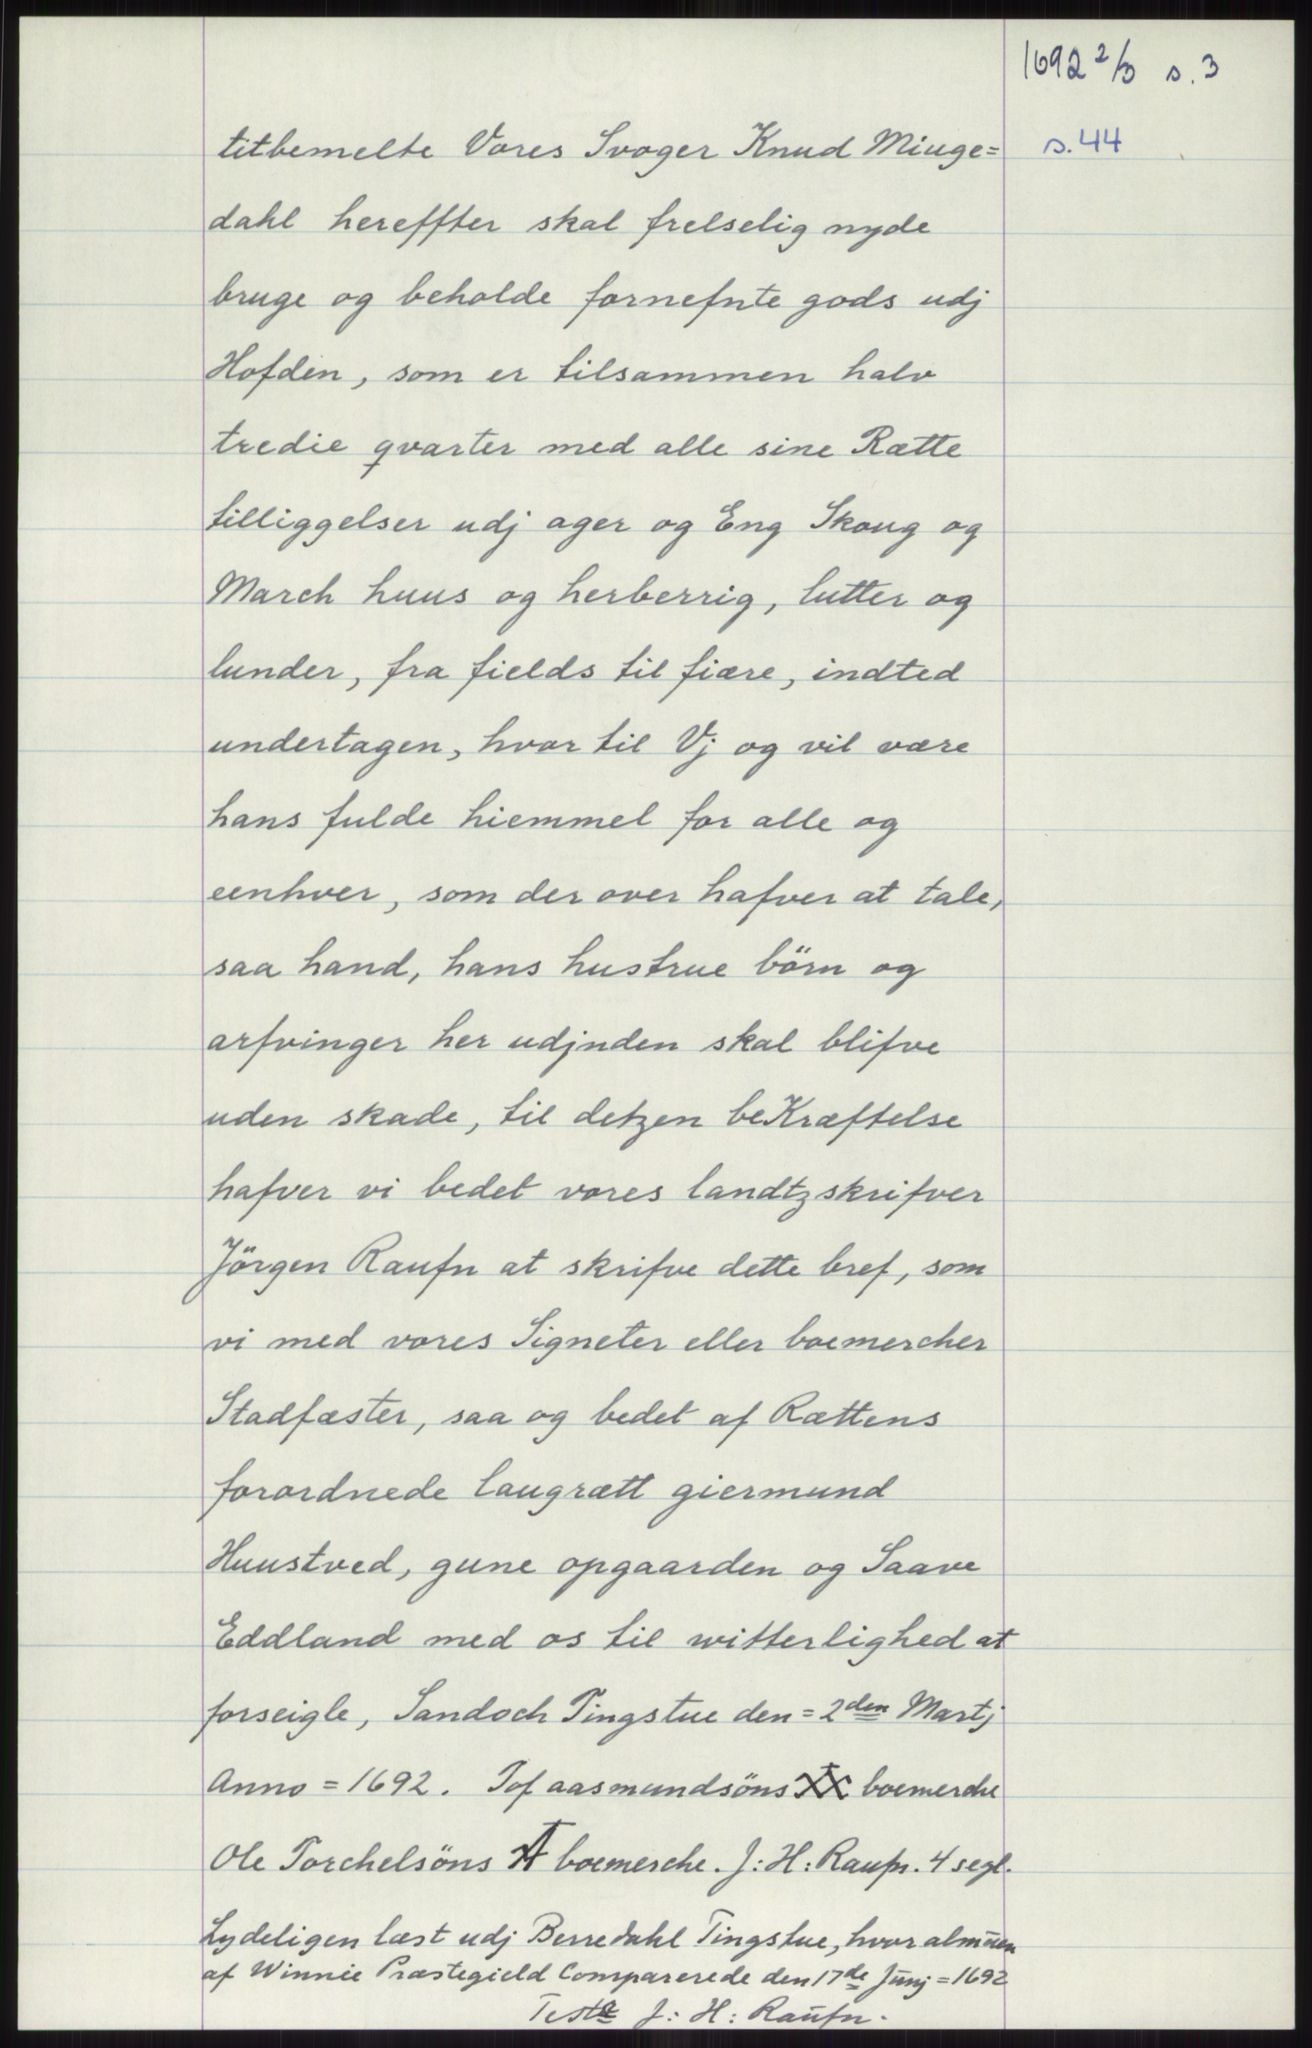 1692 2/3 s. 3
s. 44
titbemelte Vores Svoger Knud Miuge=
dahl hereffter skal frelselig nyde
bruge og beholde fornefnte gods udj
Hofden, som er tilsammen halv
tredie qvarter med alle sine Rætte
tilliggelser udj ager og Eng Skoug og
March huus og herberrig, lutter og
lunder, fra fields til fiære, indted
undertagen, hvor til Vj og vil være
hans fulde hiemmel for alle og
eenhver, som der over hafver at tale,
saa hand, hans hustrue börn og
arfvinger her udjnden skal blifve
uden skade, til detzen beKræftelse
hafver vi bedet vores landtzskrifver
Jörgen Raufn at skrifve dette bref, som
vi med vores Signeter eller boemercher
Stadfæster, saa og bedet af Rættens
forordnede laugrætt giermund
Huustved, gune opgaarden og Saave
Eddland med os til witterlighed at
forseigle, Sandoch Tingstue den = 2den Martj
Anno = 1692. Tof aasmundsöns boemerche
Ole Torchelsöns boemerche. J: H: Raufn. 4 segl.
Lydeligen læst udj Berredahl Tingstue, hvor almūen
af Winnie Præstegield Comparerede den 17de Jūnj = 1692
Teste J: H: Raūfn.